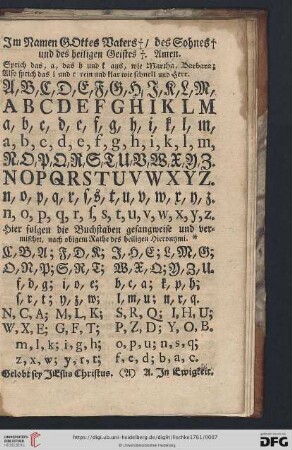 Im Namen GOttes Vaters†/ des Sohnes†
und des heiligen Geistes †. Amen.
Sprich das, a, das b und k aus, wie Martha, Barbara;
Also sprich das l und r rein und klar wie schnell und Herr.
A, B, C, D, E, F, G, H, J, K, L, M,
A B C D E F G H I K L M
a, b, c, d, e, f, g, h, i, k, l, m,
a, b, c, d, e, f, g, h, i, k, l, m,
N. O. P. Q. R. S. T. U. V. W. X. Y. Z.
NOPQRSTUVWXYZ.
n, o, p, q, r, ſ, s, t, u, v, w, x, y, z.
n, o, p, q, r, ſ, s, t, u, v, w, x, y, z.
Hier folgen die Buchstaben gesangweise und ver-
mischet, nach obigem Rathe des heiligen Hieronymi. *
C, B, A; F, D, K; J, H, E; L, M, G;
O, N, P; S, R, T; W, X, Q; Y, Z, U.
f, d, g; i, o, e; b, c, a; k, p, h;
s, r, t; y, z, w; l, m, u; n, r, q.
N, C, A; M, L, K; S, R, Q; I, H, U;
W, X, E; G, F, T; P, Z, D; Y, O, B.
m, l, k; i, g, h; o, p, u; n, s, q;
z, x, w; y, r, t; f, e, d; b, a, c.
Gelobt sey JEsus Christus. (A) A. In Ewigkeit.
https://digi.ub.uni-heidelberg.de/diglit/fischke1761/0007
UNIVERSITÄTS-
BIBLIOTHEK
HEIDELBERG
Gefördert durch
DFG